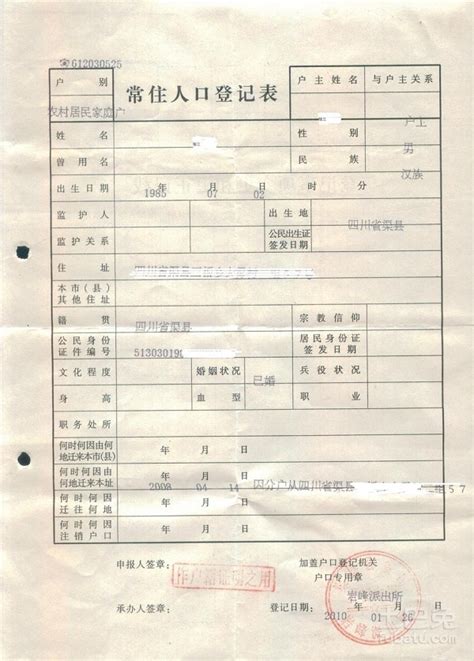 G12030525
户 别
常住人口登记表
户主姓名
与户主关系
农村居民家庭户
户主
姓 名
性 别
男
曾 用 名
民 族
汉族
出生日期
1985 年 07 月 02 日 时 分
监 护 人
出 生 地
四川省渠县
监护关系
公民出生证
签发日期
住 址
四川省渠县
本市(县)
其他住址
籍 贯
四川省渠县
宗教信仰
公民身份
证件编号
513030198
居民身份证
签发日期
文化程度
婚姻状况
已婚
兵役状况
身 高
血 型
职 业
职务处所
何时何因由何
地迁来本市(县)
年 月 日
何时何因由何
地迁来本址
2008 年 04 月 14 日
因分户从四川省渠县
57
何时何因
迁往何地
年 月 日
何时何因
注销户口
年 月 日
申报人签章:
加盖户口登记机关
户口专用章
作户籍证明之用
岩峰派出所
承办人签章:
登记日期:
2010 年 01 月 26 日